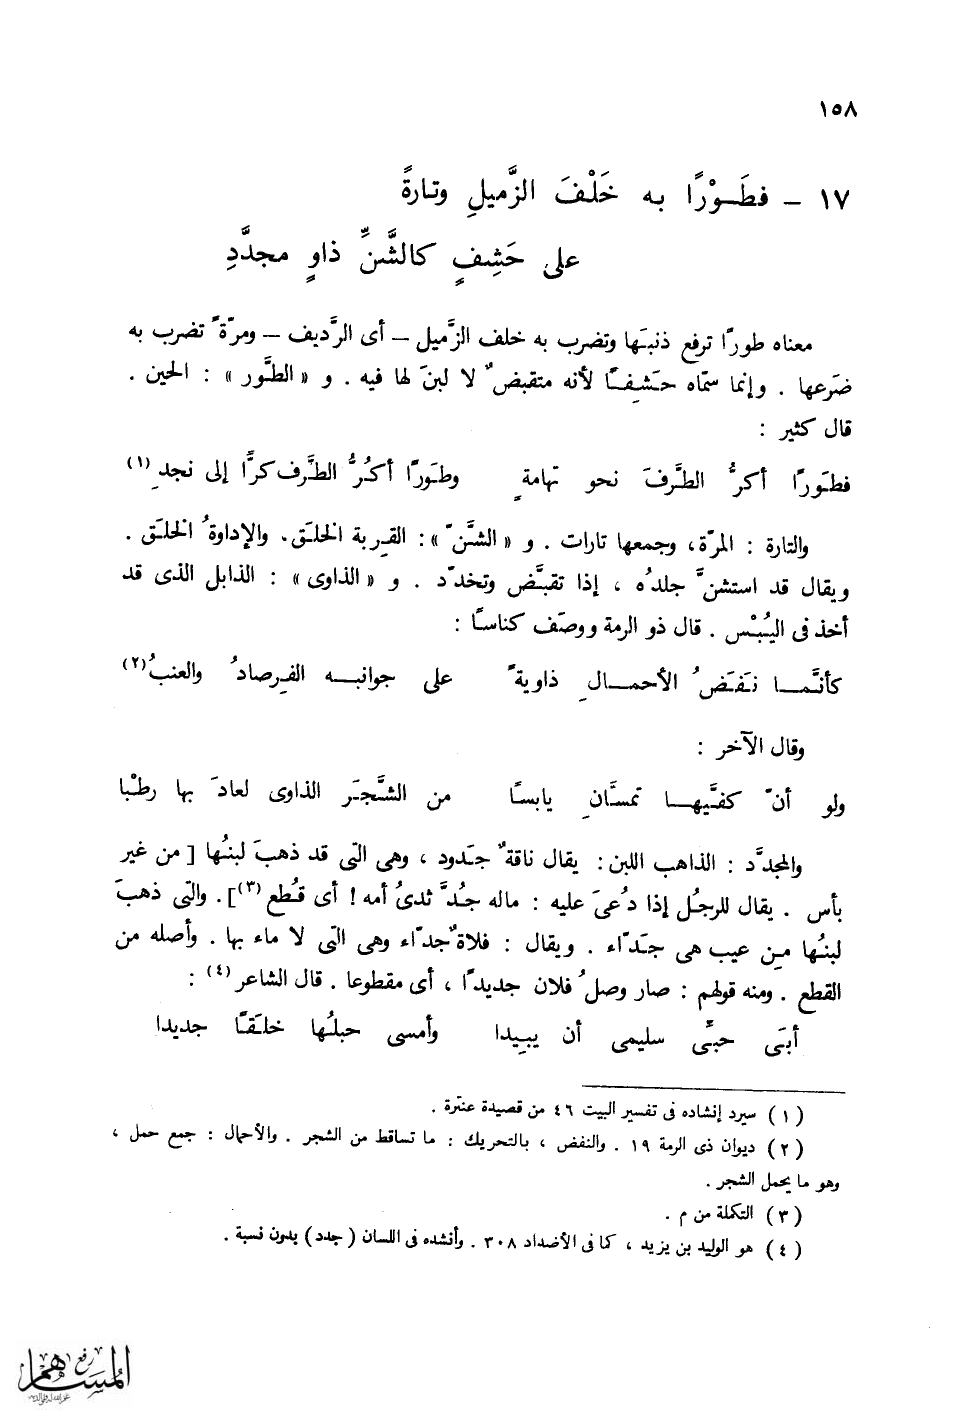 ١٥٨
١٧ ــ فطَــوْرًا به خَلْفَ الزَّميلِ وتارةً
على حَشِفٍ كالشَّنِّ ذاوٍ مجدَّدِ
معناه طورًا ترفع ذنبَها وتضرب به خلف الزَّميل ــ أى الرَّديف ــ ومرّةً تضرب به
ضَرعها . وإنما سمّاه حشِفًا لأنه متقبضٌ لا لبنَ لها فيه . و « الطَّور » : الحين .
قال كثير :
فطَورًا أكرُّ الطَّرفَ نحو تهامةٍ وطَورًا أكُرُّ الطَّرف كرًّا إلى نجدِ (١)
والتارة : المرّة، وجمعها تارات . و « الشَّنّ »: القِربة الخلَق. والإداوةُ الخلَق .
ويقال قد استشنَّ جلدُه ، إذا تقبَّض وتخدّد . و « الذاوى » : الذابل الذى قد
أخذ فى اليُبْس . قال ذو الرمة ووصَف كناسًا :
كأنَّمــا نَفَضُ الأحمــالِ ذاويةً على جوانبــه الفِرصادُ والعنبُ(٢)
وقال الآخر :
ولو أنّ كفَّيهــا تمسَّانِ يابسًا من الشَّجَر الذاوى لعادَ بها رطْبا
والمجدَّد : الذاهب اللبن : يقال ناقةٌ جَدود ، وهى التى قد ذهبَ لبنُها [ من غير
بأس . يقال للرجُل إذا دُعىَ عليه : ماله جُدَّ ثدىُ أمه ! أى قُطع (٣)]. والتى ذهبَ
لبنُها مِن عيب هى جَدّاء . ويقال : فلاةٌ جدّاء وهى التى لا ماء بها . وأصله من
القطع . ومنه قولهم : صار وصلُ فلان جديدًا ، أى مقطوعا . قال الشاعر (٤) :
أبَى حبِّى سليمى أن يبِيدا وأمسى حبلُها خلَقًا جديدا
(١) سيرد إنشاده فى تفسير البيت ٤٦ من قصيدة عنترة .
(٢) ديوان ذى الرمة ١٩ . والنفض ، بالتحريك : ما تساقط من الشجر . والأحمال : جمع حمل ،
وهو ما يحمل الشجر .
(٣) التكملة من م .
(٤) هو الوليد بن يزيد ، كما فى الأضداد ٣٠٨ . وأنشده فى اللسان ( جدد ) بدون نسبة .